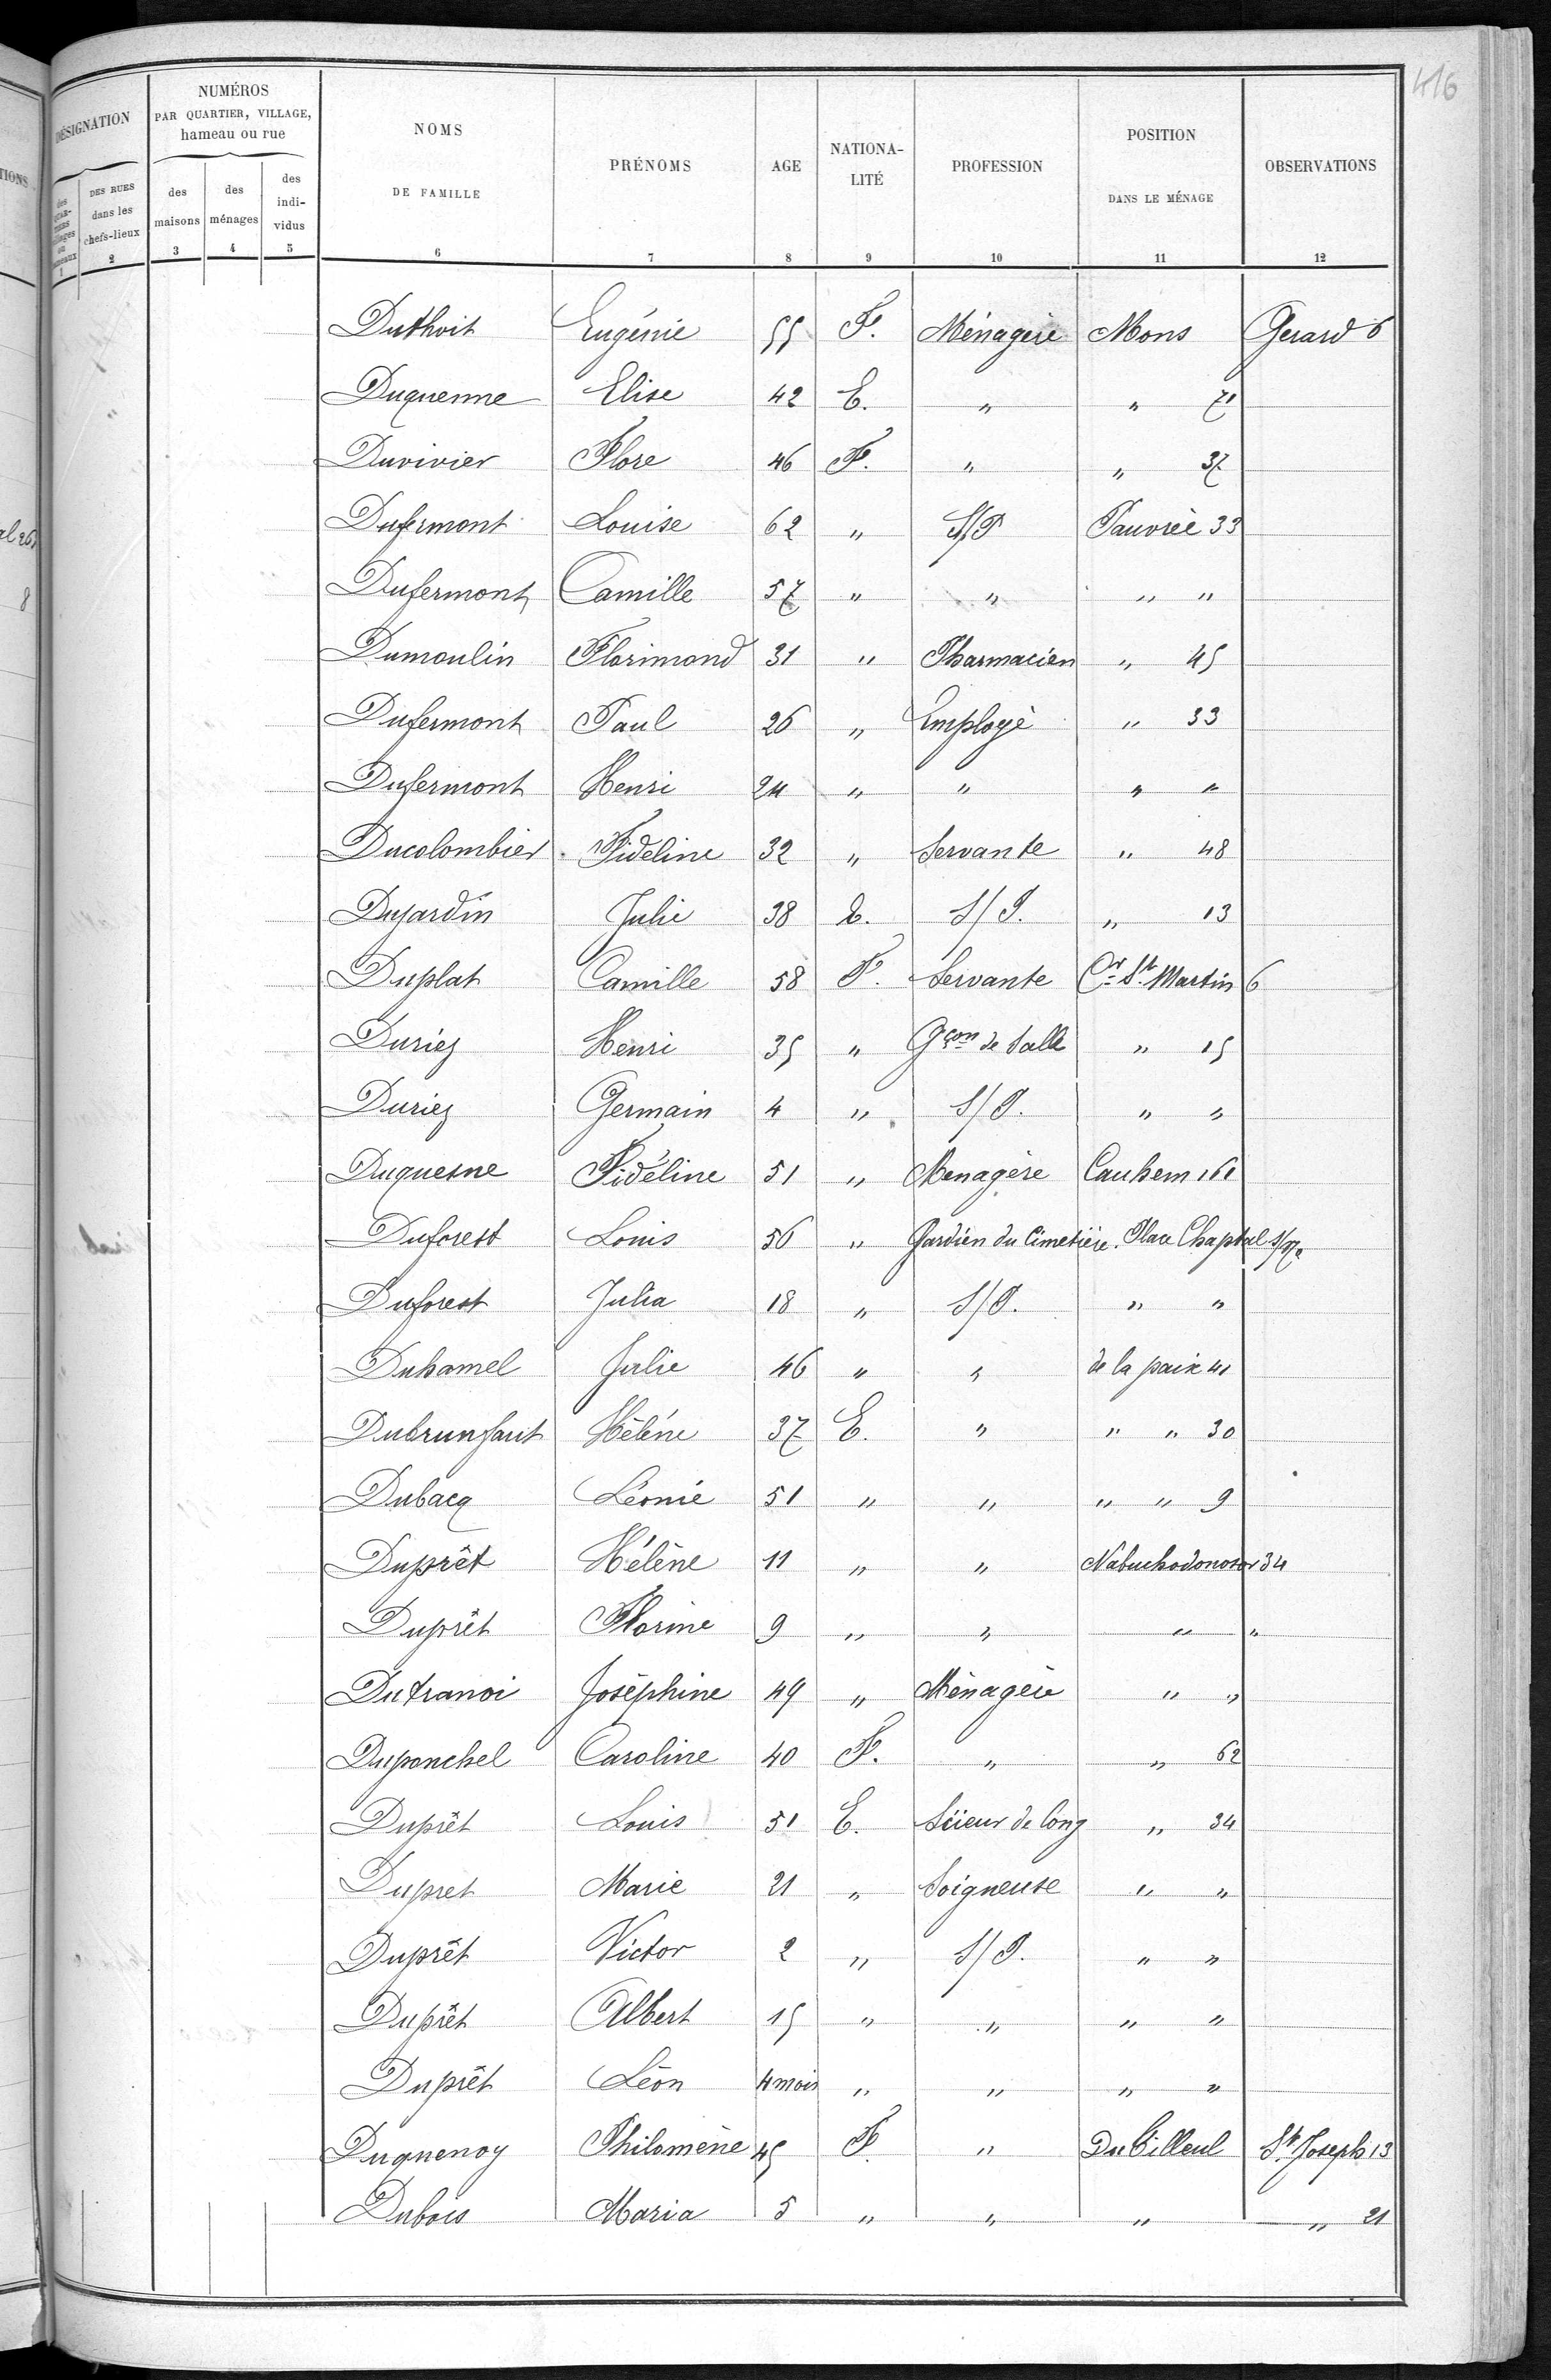 416
DÉSIGNATION
NUMÉROS
PAR QUARTIER, VILLAGE,
hameau ou rue
NOMS
DE FAMILLE
PRÉNOMS
AGE
NATIONA-
LITÉ
PROFESSION
POSITION
DANS LE MÉNAGE
OBSERVATIONS
DES RUES
dans les
chefs-lieux
des
maisons
des
ménages
des
indi-
vidus
1 2 3 4 5 6 7 8 9 10 11 12
Duthoit Eugénie 55 F. Ménagère Mons Gerard 6
Duquenne Elise 42 E. " " 71
Duvivier Flore 46 F. " " 37
Dufermont Louise 62 " S/P Pauvrée 33
Dufermont Camille 57 " " " "
Dumoulin Florimond 31 " Pharmacien " 45
Dufermont Paul 26 " Employé " 33
Dufermont Henri 24 " " " "
Ducolombier Fideline 32 " Servante " 48
Dujardin Julie 38 E. S/P. " 13
Duplat Camille 58 F. Servante Cr St Martin 6
Duriez Henri 35 " Gçon de Salle " 15
Duriez Germain 4 " S/P. " "
Duquesne Fidéline 51 " Menagère Cauhem 161
Duforest Louis 56 " Gardien du Cimetière. Place Chaptal s/no
Duforest Julia 18 " S/P. " "
Duhamel Julie 46 " " de la paix 41
Dubrunfaut Hélène 37 E. " " " 30
Dubacq Léonie 51 " " " " 9
Duprêt Hélène 11 " " Nabuchodonosor 34
Duprêt Florine 9 " " " "
Dutranoi Joséphine 49 " Ménagère " "
Duponchel Caroline 40 F. " " 62
Duprêt Louis 51 E. Scieur de long " 34
Dupret Marie 21 " Soigneuse " "
Duprêt Victor 2 " S/P. " "
Duprêt Albert 15 " " " "
Duprêt Léon 4 mois " " " "
Duquenoy Philomène 45 F. " Du Tilleul St Joseph 13
Dubois Maria 5 " " " " 21